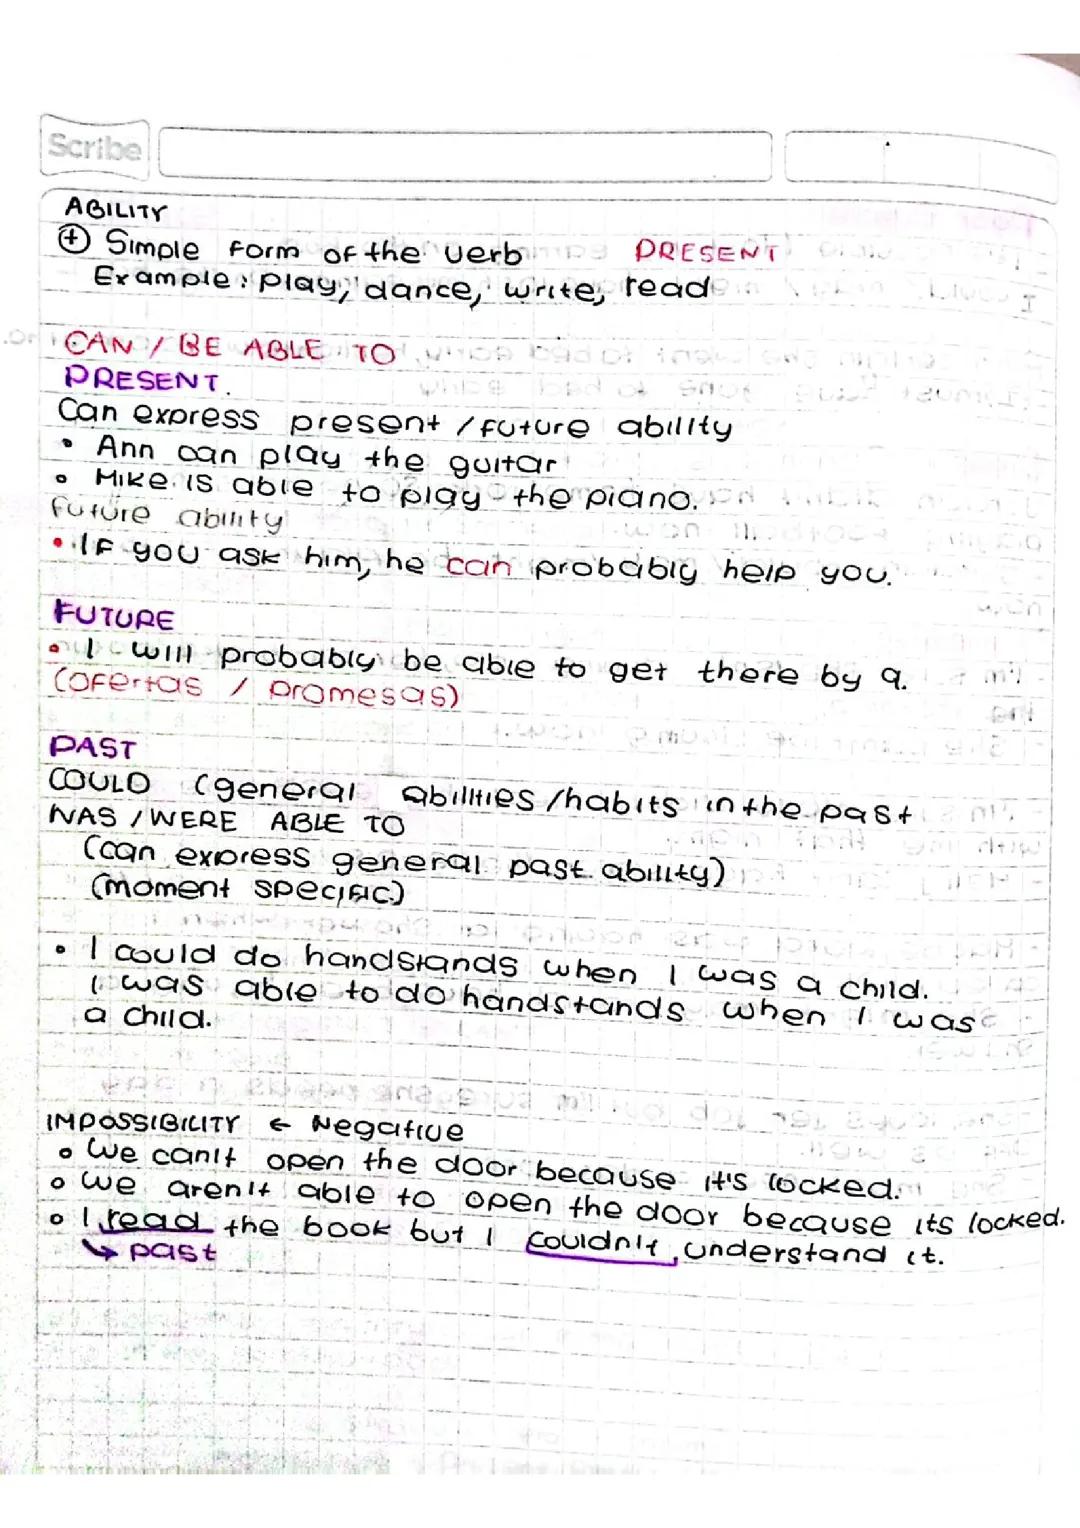 Scribe
ABILITY
+ Simple form of the verb PRESENT
Example: play, dance, write, read
CAN / BE ABLE TO
PRESENT.
Can express present / future ability
• Ann can play the guitar
• Mike is able to play the piano.
future ability
• If you ask him, he can probably help you.
FUTURE
• I will probably be able to get there by 9.
(ofertas / promesas)
PAST
COULD (general abilities/habits in the past
WAS / WERE ABLE TO
(can express general past ability)
(moment specific)
• I could do handstands when I was a child.
I was able to do handstands when I was
a child.
IMPOSSIBILITY ← Negative
• We can't open the door because it's locked.
• We aren't able to open the door because its locked.
• I read the book but I couldn't understand it.
↳ past